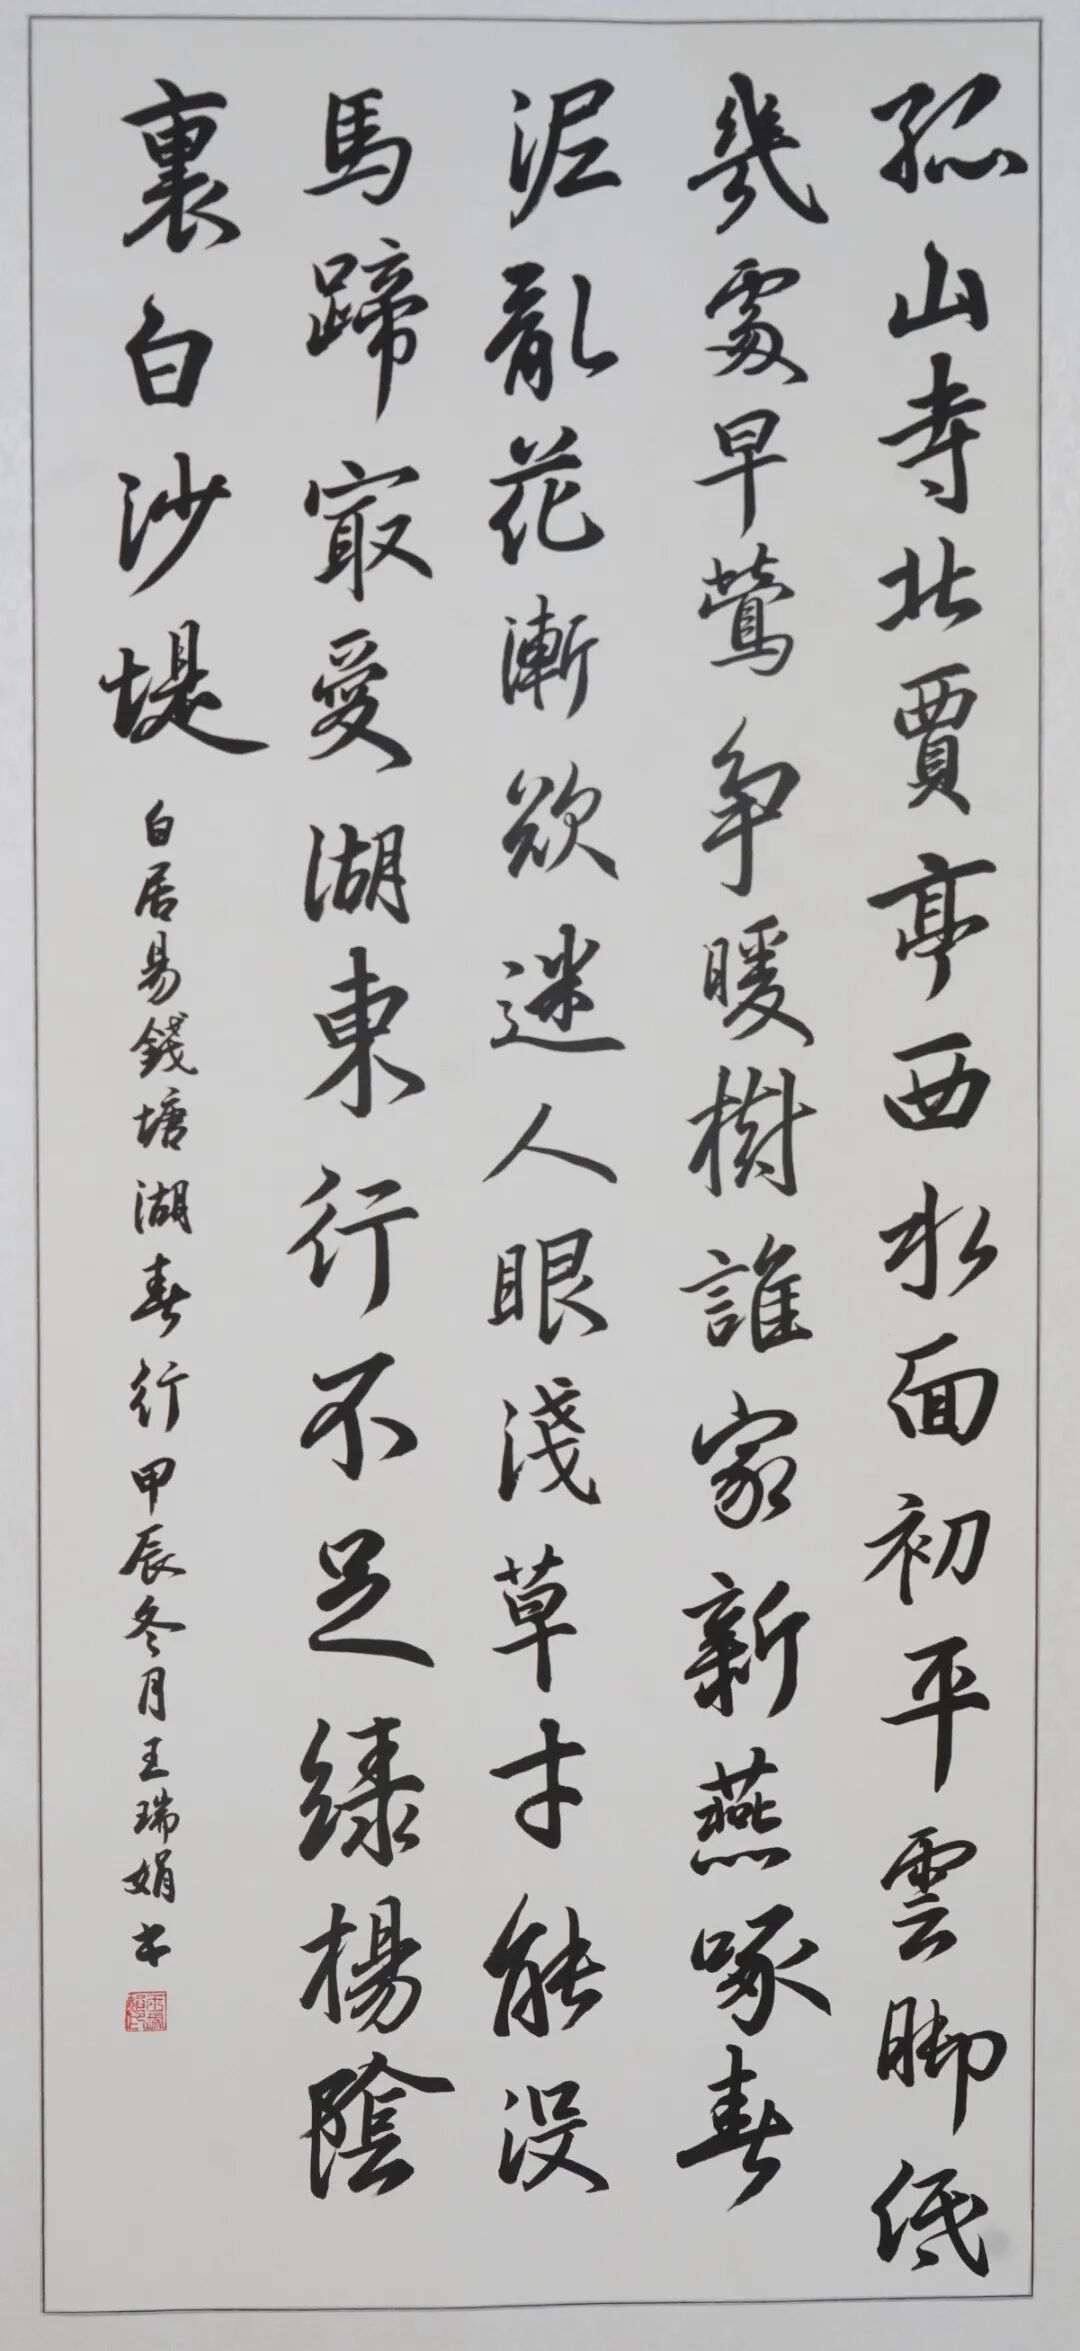 孤山寺北賈亭西水面初平雲脚低
幾處早鶯争暖樹誰家新燕啄春
泥亂花漸欲迷人眼淺草才能没
馬蹄最愛湖東行不足綠楊陰
裏白沙堤
白居易錢塘湖春行甲辰冬月王瑞娟书